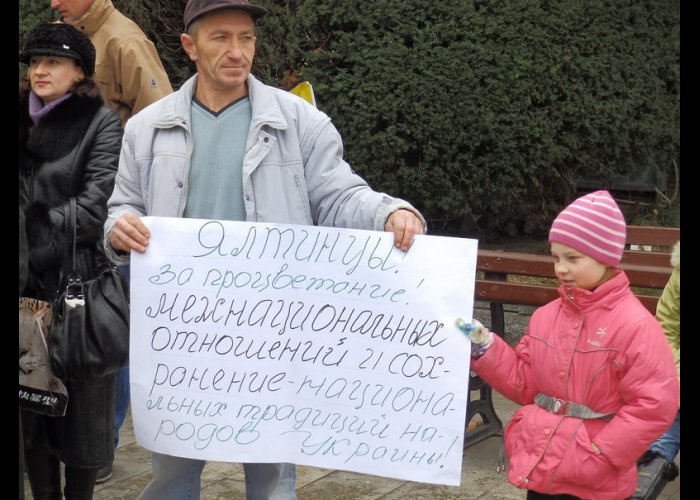 Ялтинцы!
За процветание!
межнациональных
отношений и сох-
ранение-национа-
льных традиций на-
родов Украины!